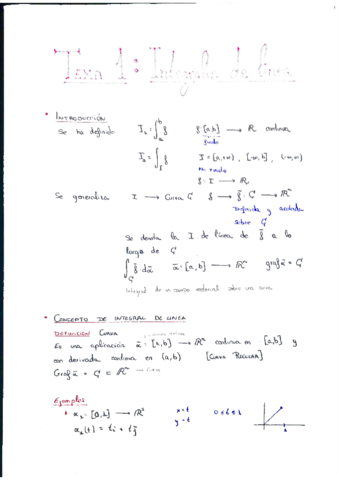 Tema 1: Integrales de línea
• INTRODUCCIÓN
Se ha definido I₁ = ∫ₐᵇ f f: [a,b] → ℝ continua
I₂ = ∫_I f I = [a,+∞), [-∞,b], (-∞,∞)
f: I → ℝ
Se generaliza I → Curva C f → f̄: C → ℝⁿ
definida y acotada
sobre C
Se denota la I. de línea de f̄ a lo
largo de C
∫_C f̄·dᾱ ᾱ: [a,b] → ℝⁿ graf ᾱ = C
Integral de un campo vectorial sobre una curva
• CONCEPTO DE INTEGRAL DE LINEA
DEFINICIÓN CURVA
Es una aplicación ᾱ: [a,b] → ℝⁿ continua en [a,b] y
con derivada continua en (a,b) [CURVA REGULAR]
Graf ᾱ = C ⊂ ℝⁿ → curva
Ejemplos
• α₁: [0,b] → ℝ² x=t 0≤t≤b
α₁(t) = t i + t j y=t